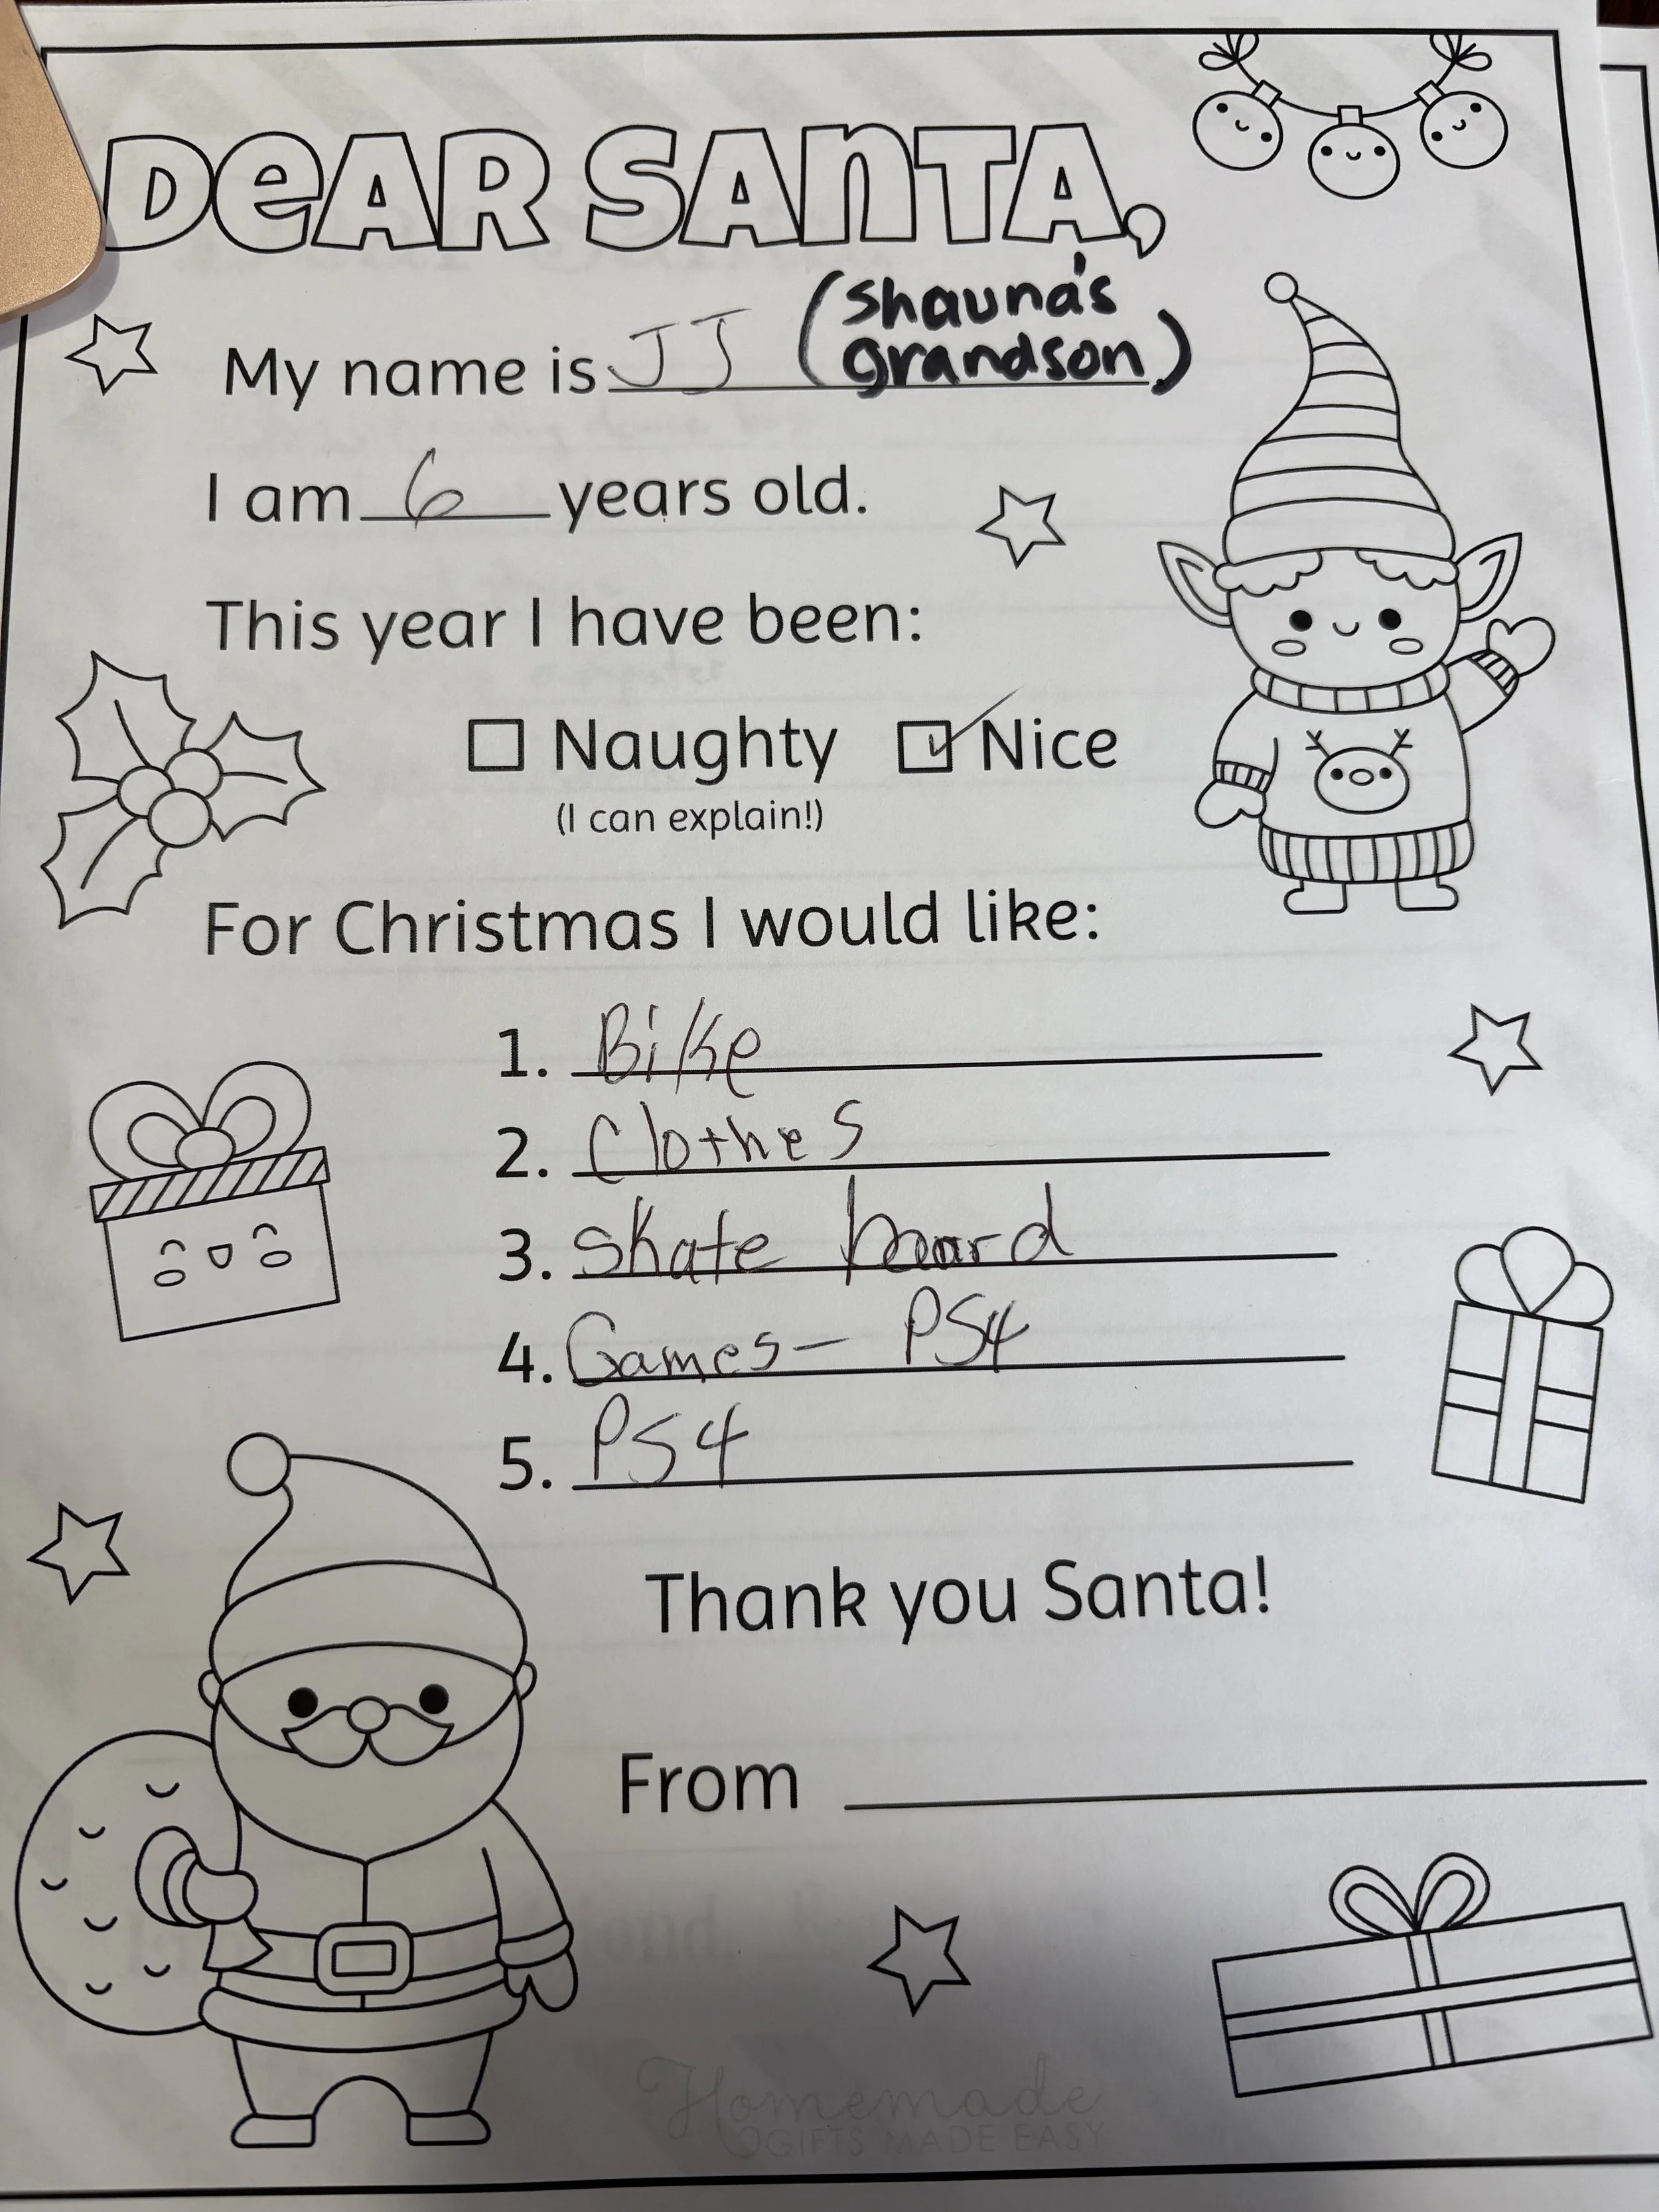 DEAR SANTA,
My name is JJ (Shauna's
grandson)
I am 6 years old.
This year I have been:
Naughty Nice
(I can explain!)
For Christmas I would like:
1. Bike
2. Clothes
3. Skate board
4. Games- PS4
5. PS4
Thank you Santa!
From
Homemade
GIFTS MADE EASY